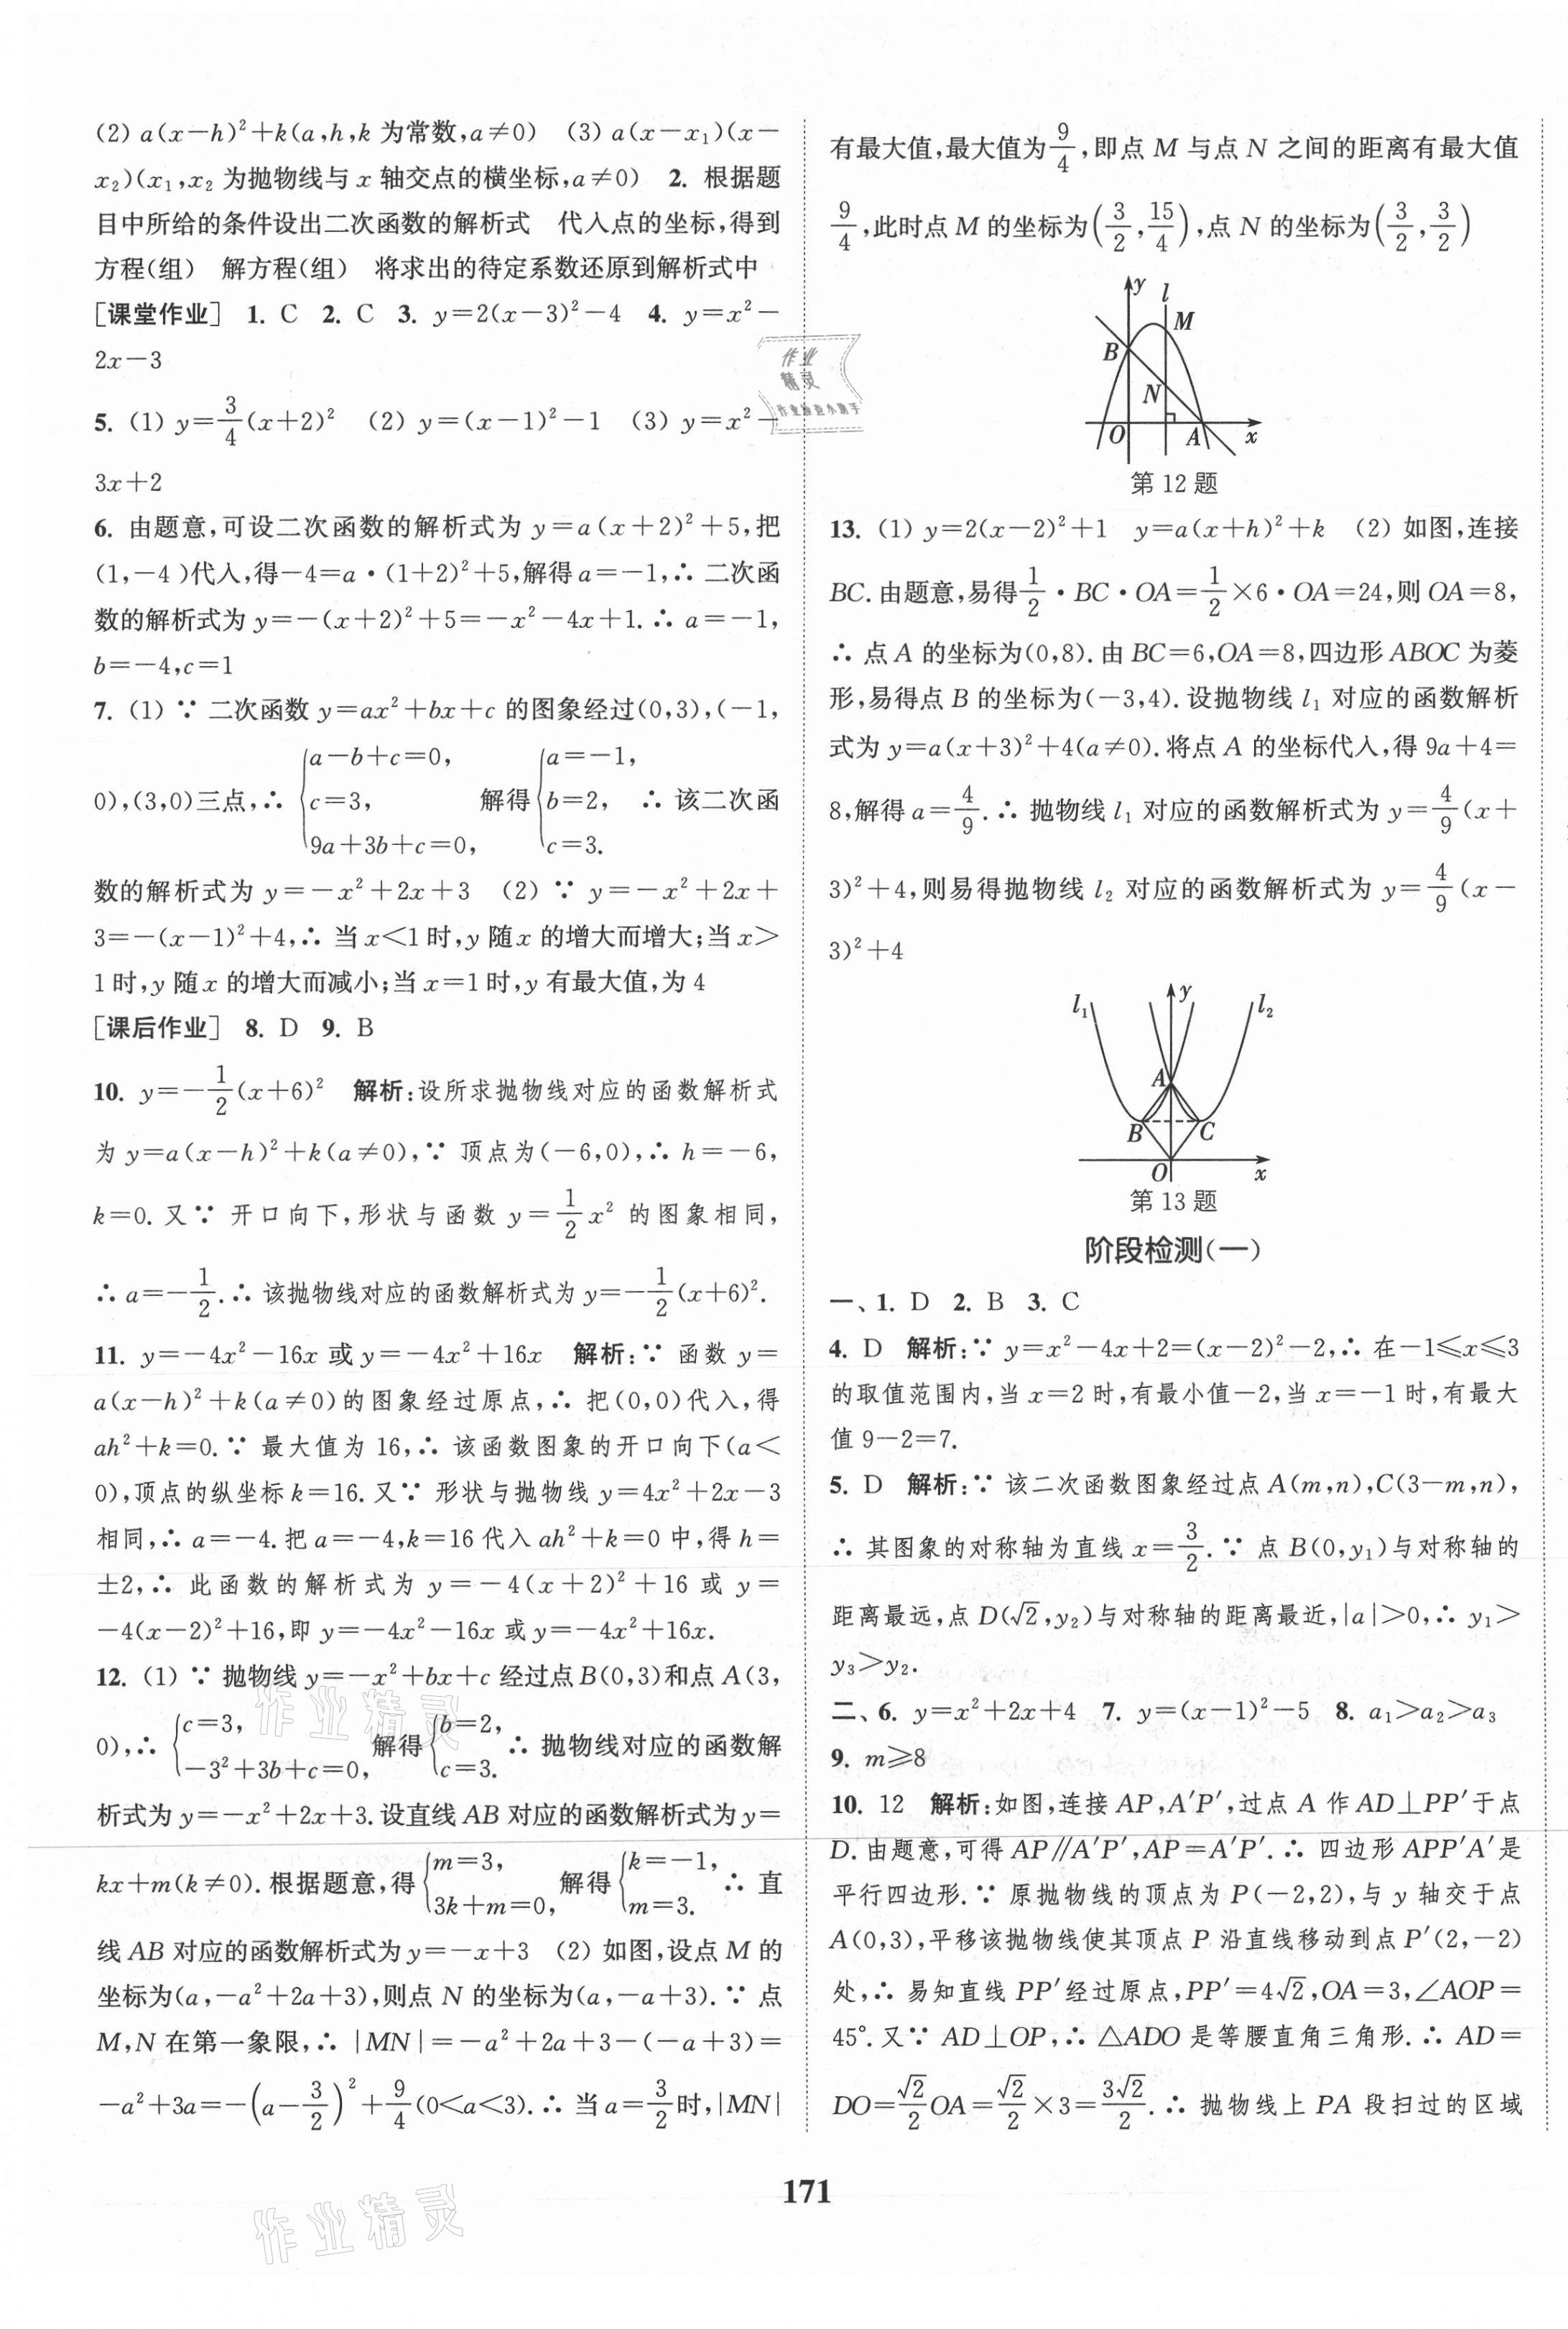 (2) a(x－h)²＋k(a,h,k 为常数,a≠0)　(3) a(x－x₁)(x－
x₂)(x₁,x₂ 为抛物线与 x 轴交点的横坐标,a≠0)　2. 根据题
目中所给的条件设出二次函数的解析式　代入点的坐标,得到
方程(组)　解方程(组)　将求出的待定系数还原到解析式中
[课堂作业]　1. C　2. C　3. y＝2(x－3)²－4　4. y＝x²－
2x－3
5. (1) y＝3/4(x＋2)²　(2) y＝(x－1)²－1　(3) y＝x²－
3x＋2
6. 由题意,可设二次函数的解析式为 y＝a(x＋2)²＋5,把
(1,－4)代入,得－4＝a·(1＋2)²＋5,解得 a＝－1,∴ 二次函
数的解析式为 y＝－(x＋2)²＋5＝－x²－4x＋1.∴ a＝－1,
b＝－4,c＝1
7. (1) ∵ 二次函数 y＝ax²＋bx＋c 的图象经过(0,3),(－1,
0),(3,0)三点,∴ {a－b＋c＝0, c＝3, 9a＋3b＋c＝0, 解得{a＝－1, b＝2, c＝3. ∴ 该二次函
数的解析式为 y＝－x²＋2x＋3　(2) ∵ y＝－x²＋2x＋
3＝－(x－1)²＋4,∴ 当 x＜1 时,y 随 x 的增大而增大;当 x＞
1 时,y 随 x 的增大而减小;当 x＝1 时,y 有最大值,为 4
[课后作业]　8. D　9. B
10. y＝－1/2(x＋6)²　解析:设所求抛物线对应的函数解析式
为 y＝a(x－h)²＋k(a≠0),∵ 顶点为(－6,0),∴ h＝－6,
k＝0. 又∵ 开口向下,形状与函数 y＝1/2x² 的图象相同,
∴ a＝－1/2.∴ 该抛物线对应的函数解析式为 y＝－1/2(x＋6)².
11. y＝－4x²－16x 或 y＝－4x²＋16x　解析:∵ 函数 y＝
a(x－h)²＋k(a≠0)的图象经过原点,∴ 把(0,0)代入,得
ah²＋k＝0.∵ 最大值为 16,∴ 该函数图象的开口向下(a＜
0),顶点的纵坐标 k＝16. 又∵ 形状与抛物线 y＝4x²＋2x－3
相同,∴ a＝－4. 把 a＝－4,k＝16 代入 ah²＋k＝0 中,得 h＝
±2,∴ 此函数的解析式为 y＝－4(x＋2)²＋16 或 y＝
－4(x－2)²＋16,即 y＝－4x²－16x 或 y＝－4x²＋16x.
12. (1) ∵ 抛物线 y＝－x²＋bx＋c 经过点 B(0,3)和点 A(3,
0),∴ {c＝3, －3²＋3b＋c＝0, 解得{b＝2, c＝3. ∴ 抛物线对应的函数解
析式为 y＝－x²＋2x＋3. 设直线 AB 对应的函数解析式为 y＝
kx＋m(k≠0). 根据题意,得{m＝3, 3k＋m＝0, 解得{k＝－1, m＝3. ∴ 直
线 AB 对应的函数解析式为 y＝－x＋3　(2) 如图,设点 M 的
坐标为(a,－a²＋2a＋3),则点 N 的坐标为(a,－a＋3).∵ 点
M,N 在第一象限,∴ |MN|＝－a²＋2a＋3－(－a＋3)＝
－a²＋3a＝－(a－3/2)²＋9/4(0＜a＜3).∴ 当 a＝3/2时,|MN|
有最大值,最大值为9/4,即点 M 与点 N 之间的距离有最大值
9/4,此时点 M 的坐标为(3/2,15/4),点 N 的坐标为(3/2,3/2)
y
l
M
B
N
O
A
x
第 12 题
13. (1) y＝2(x－2)²＋1　y＝a(x＋h)²＋k　(2) 如图,连接
BC. 由题意,易得1/2·BC·OA＝1/2×6·OA＝24,则 OA＝8,
∴ 点 A 的坐标为(0,8). 由 BC＝6,OA＝8,四边形 ABOC 为菱
形,易得点 B 的坐标为(－3,4). 设抛物线 l₁ 对应的函数解析
式为 y＝a(x＋3)²＋4(a≠0). 将点 A 的坐标代入,得 9a＋4＝
8,解得 a＝4/9.∴ 抛物线 l₁ 对应的函数解析式为 y＝4/9(x＋
3)²＋4,则易得抛物线 l₂ 对应的函数解析式为 y＝4/9(x－
3)²＋4
l₁
y
l₂
A
B
C
O
x
第 13 题
阶段检测(一)
一、1. D　2. B　3. C
4. D　解析:∵ y＝x²－4x＋2＝(x－2)²－2,∴ 在－1≤x≤3
的取值范围内,当 x＝2 时,有最小值－2,当 x＝－1 时,有最大
值 9－2＝7.
5. D　解析:∵ 该二次函数图象经过点 A(m,n),C(3－m,n),
∴ 其图象的对称轴为直线 x＝3/2.∵ 点 B(0,y₁)与对称轴的
距离最远,点 D(√2,y₂)与对称轴的距离最近,|a|＞0,∴ y₁＞
y₃＞y₂.
二、6. y＝x²＋2x＋4　7. y＝(x－1)²－5　8. a₁＞a₂＞a₃
9. m≥8
10. 12　解析:如图,连接 AP,A′P′,过点 A 作 AD⊥PP′于点
D. 由题意,可得 AP∥A′P′,AP＝A′P′.∴ 四边形 APP′A′是
平行四边形.∵ 原抛物线的顶点为 P(－2,2),与 y 轴交于点
A(0,3),平移该抛物线使其顶点 P 沿直线移动到点 P′(2,－2)
处,∴ 易知直线 PP′经过原点,PP′＝4√2,OA＝3,∠AOP＝
45°. 又∵ AD⊥OP,∴ △ADO 是等腰直角三角形.∴ AD＝
DO＝√2/2OA＝√2/2×3＝3√2/2.∴ 抛物线上 PA 段扫过的区域
171
作业
精灵
作业精灵
作业精灵